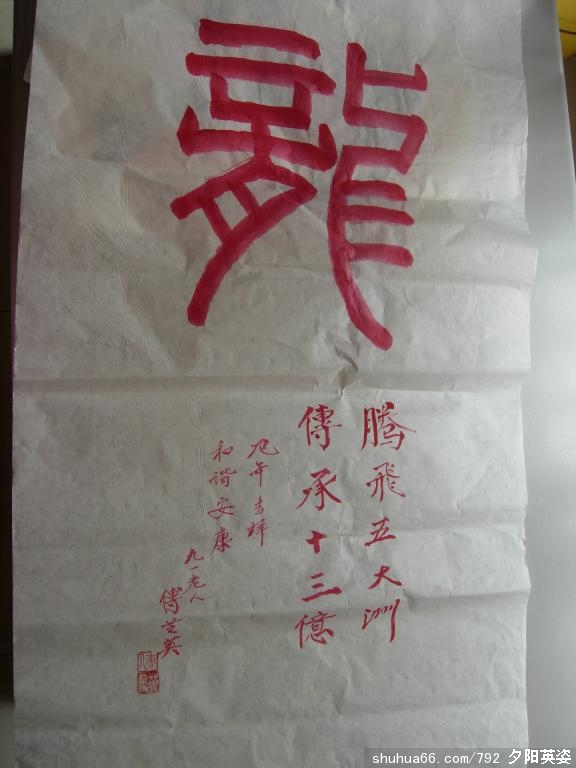 龍
腾飛五大洲
傳承十三億
龙年吉祥
和谐安康
九一老人
傅芝英
shuhua66.com/792 夕阳英姿